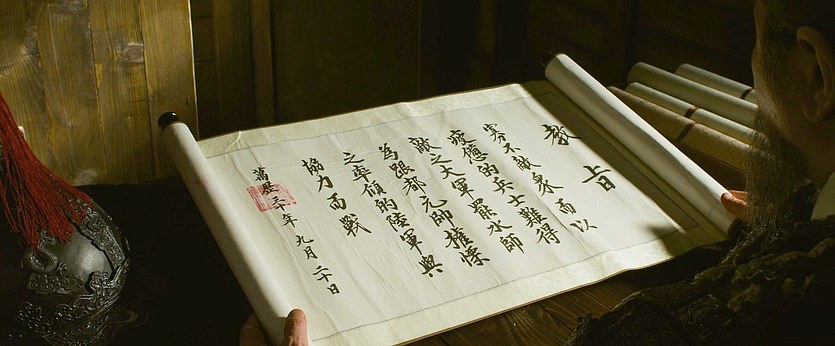 教旨
寡不敵衆而以
疲憊的兵士難得
敵之大軍罷水師
為跟都元帥權慄
之率領的陸軍與
協力而戰
萬歷三十年九月二十日